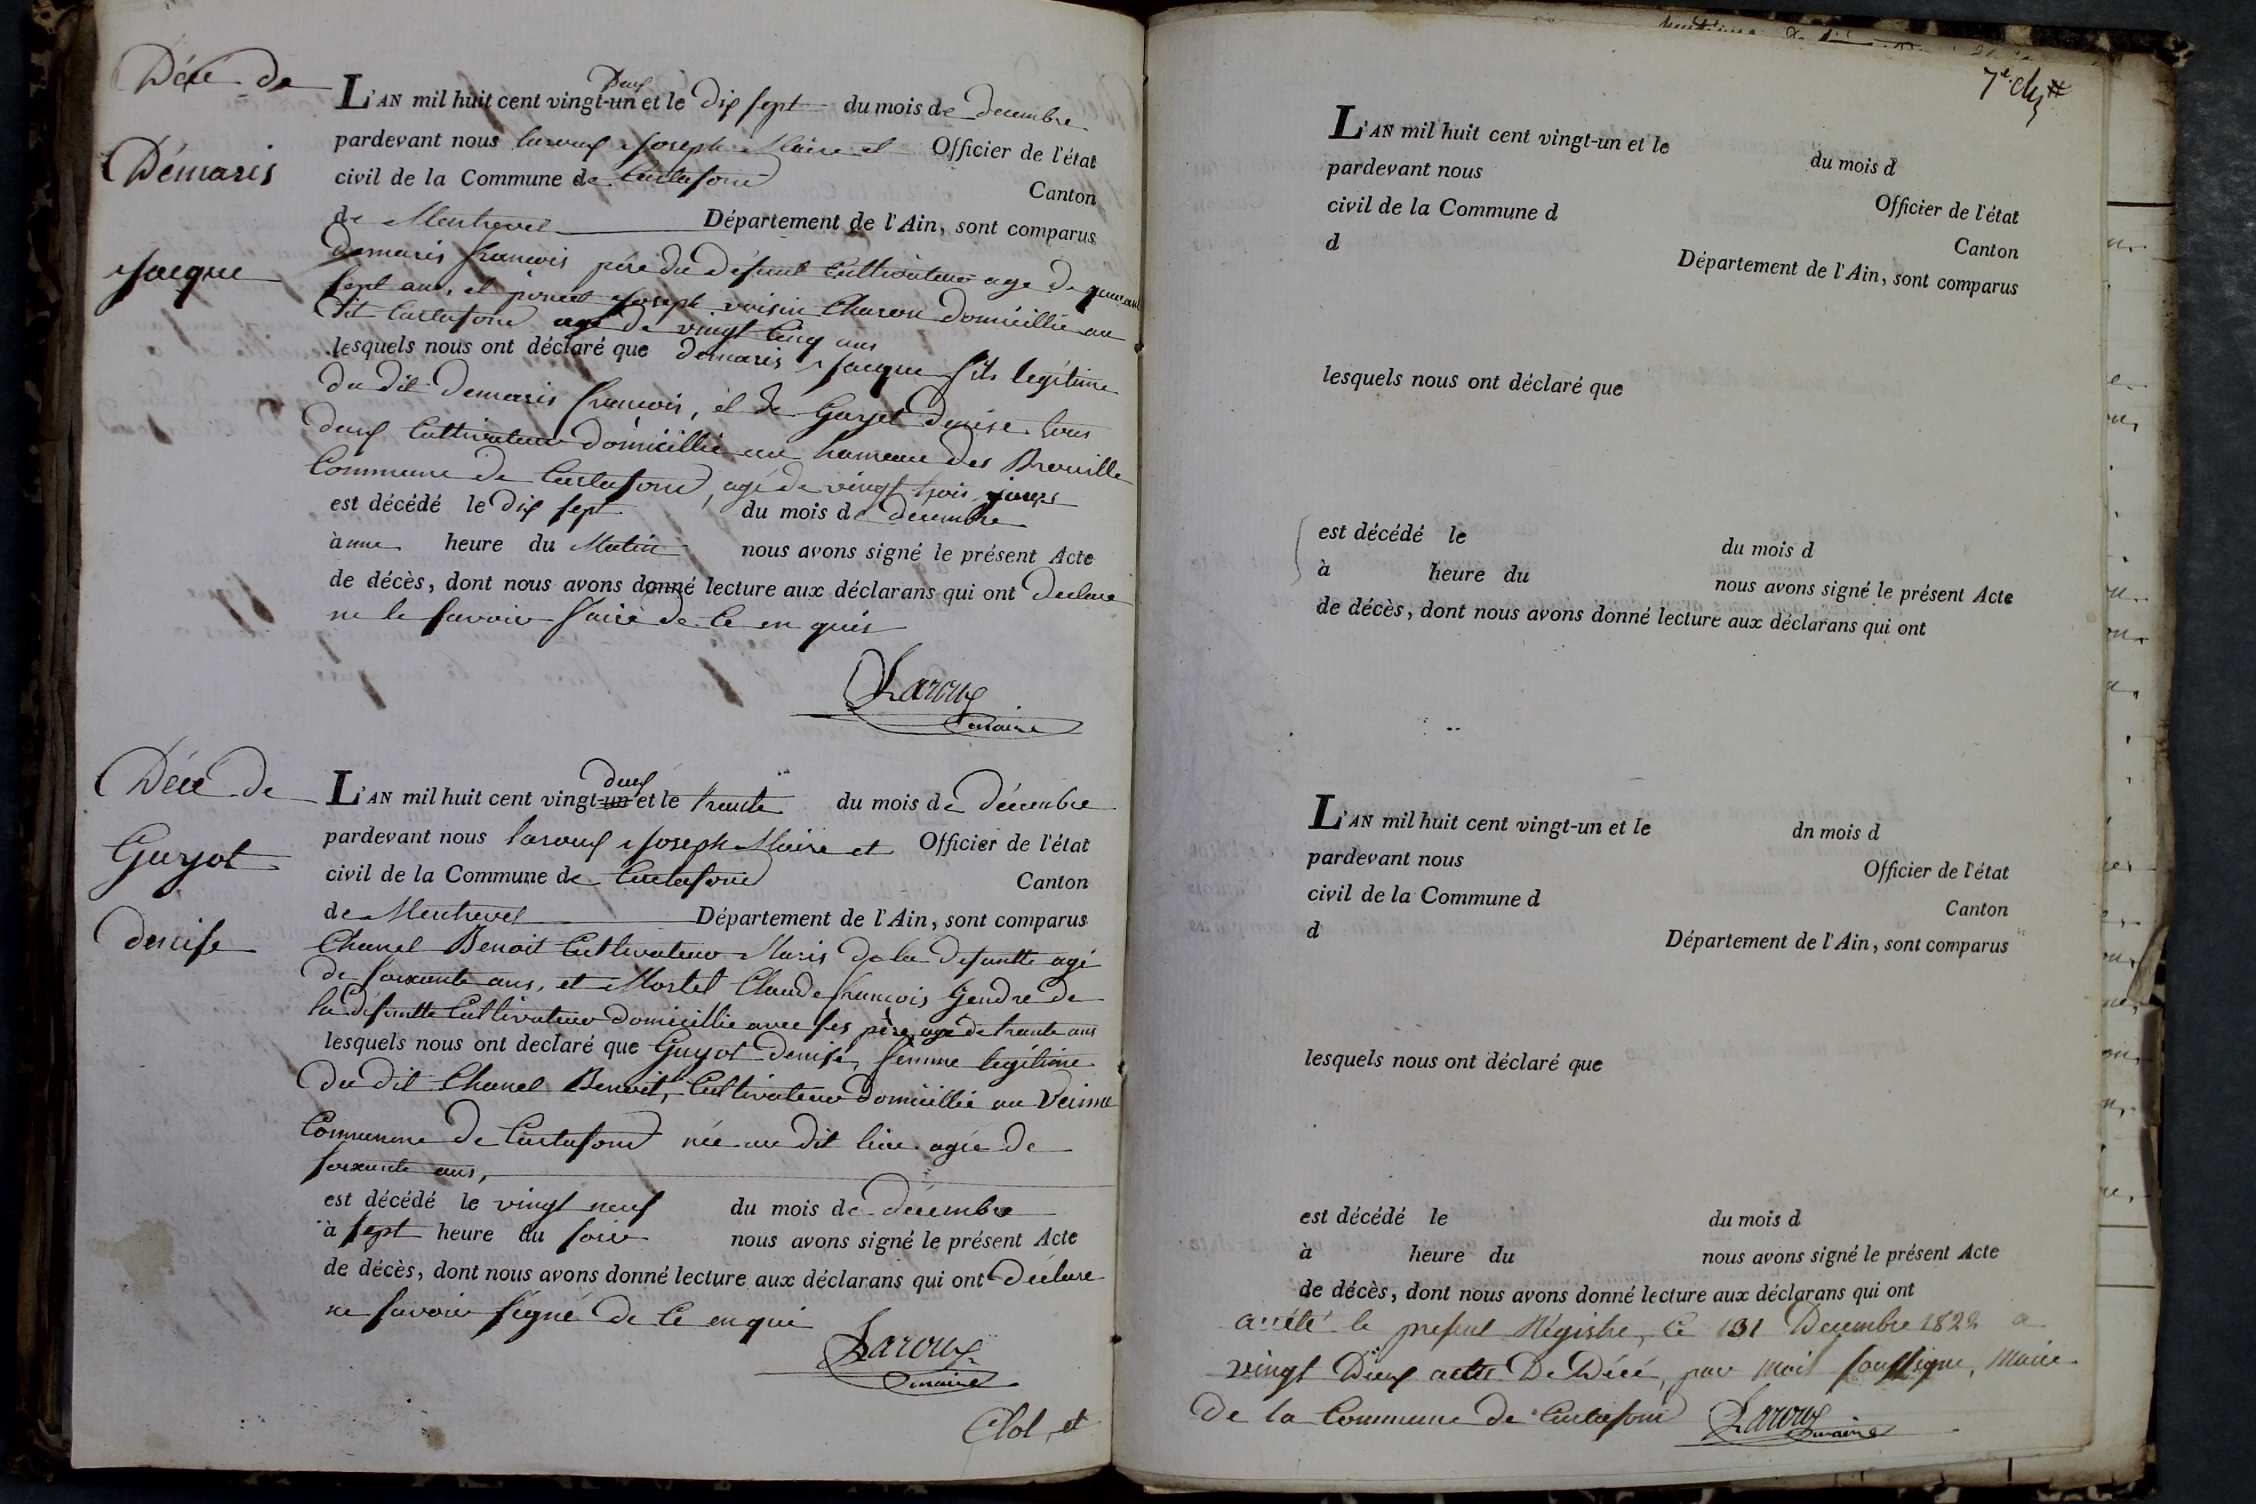 Décé de
Démaris
Jacque
L'AN mil huit cent vingt-un deux et le dix sept du mois de decembre
pardevant nous laroux Joseph Maire et Officier de l'état
civil de la Commune de Curtafond Canton
de Montrevel Département de l'Ain, sont comparus
Demaris francois père du défunt Cultivateur age de quarante
sept ans, et poncet Joseph voisin Charon domicillié au
dit Curtafond agé de vingt cinq ans
lesquels nous ont déclaré que demaris Jacque fils légitime
du dit Demaris francois, et de Guyot denise tous
deux Cultivateur domicillié au hameau des Brouille
Commune de Curtafond, agé de vingt trois jours
est décédé le dix sept du mois de decembre
à une heure du Matin nous avons signé le présent Acte
de décès, dont nous avons donné lecture aux déclarans qui ont declare
ne le savoir faire de ce en quis
Laroux
maire
Décé de
Guyot
denise
L'AN mil huit cent vingt-un deux et le trente du mois de décembre
pardevant nous laroux Joseph Maire et Officier de l'état
civil de la Commune de Curtafond Canton
de Montrevel Département de l'Ain, sont comparus
Chanel Benoit Cultivateur Maris de la defuntte agé
de soixante ans, et Mortel Claude francois Gendre de
la défuntte Cultivateur domicillie avec ses père, agé de trente ans
lesquels nous ont declaré que Guyot denise, femme legitime
du dit Chanel Benoit, Cultivateur domicillié au
Commune de Curtafond née au dit lieu agée de
soixante ans,
est décédé le vingt neuf du mois de décembre
à sept heure du soir nous avons signé le présent Acte
de décès, dont nous avons donné lecture aux déclarans qui ont déclare
ne savoir signé de ce en qui
Laroux
maire
Clot, et
L'AN mil huit cent vingt-un et le du mois d
pardevant nous Officier de l'état
civil de la Commune d Canton
d Département de l'Ain, sont comparus
lesquels nous ont déclaré que
est décédé le du mois d
à heure du nous avons signé le présent Acte
de décès, dont nous avons donné lecture aux déclarans qui ont
L'AN mil huit cent vingt-un et le dn mois d
pardevant nous Officier de l'état
civil de la Commune d Canton
d Département de l'Ain, sont comparus
lesquels nous ont déclaré que
est décédé le du mois d
à heure du nous avons signé le présent Acte
de décès, dont nous avons donné lecture aux déclarans qui ont
arrêté le present Régistre, ce 31 Decembre 1822 a
vingt Deux actes De Décé, par moi soussigne, Maire
De la Commune de Curtafond Laroux
maire